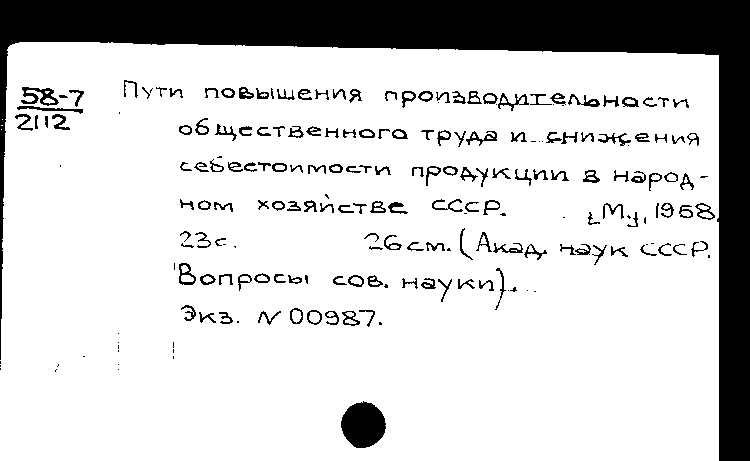 58-7
2112
Пути повышения производительности
общественного труда и снижения
себестоимости продукции в народ-
ном хозяйстве СССР. [М], 1958.
23с. 26см. (Акад. наук СССР.
Вопросы сов. науки).
Экз. N 00987.